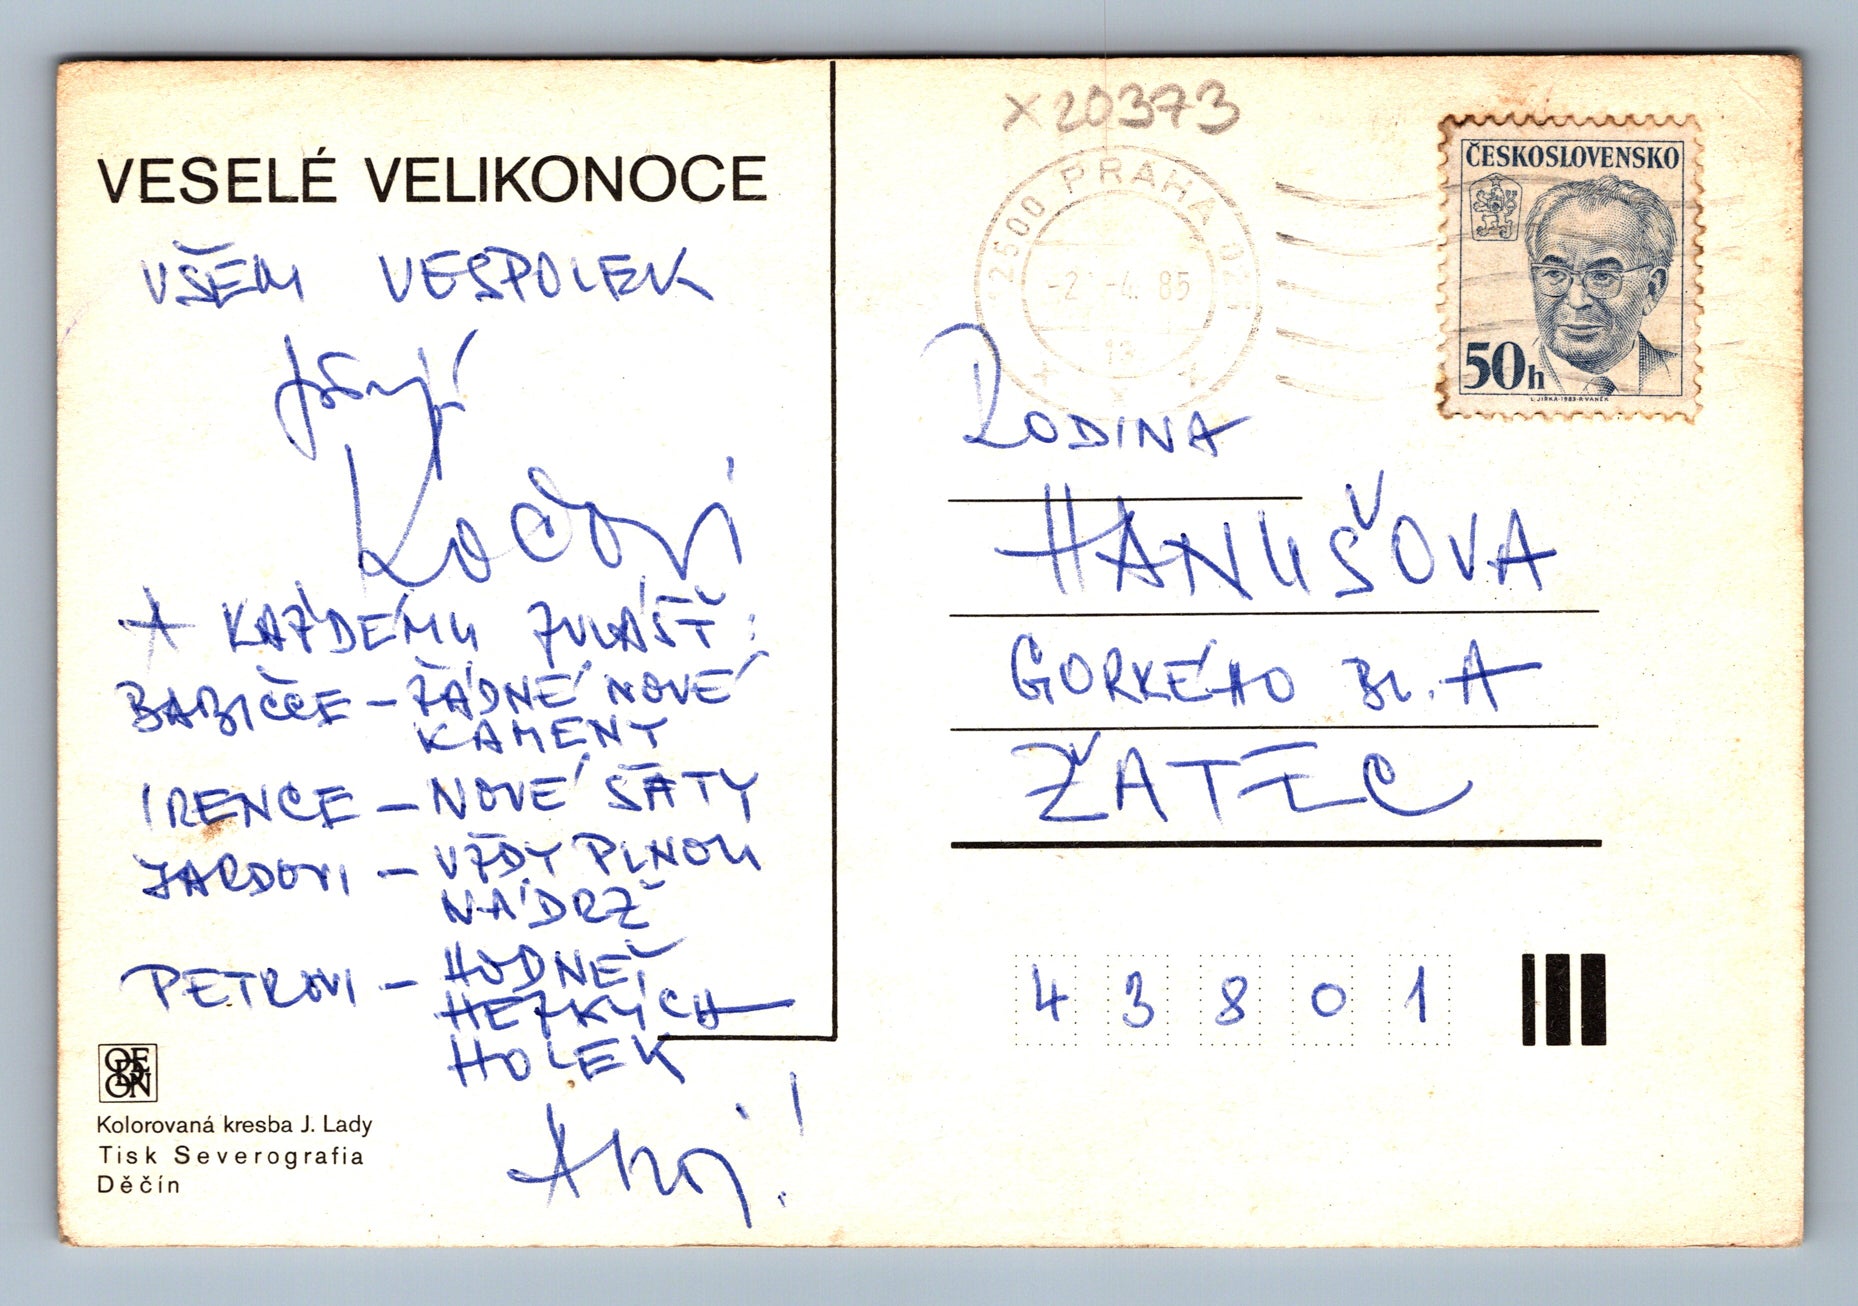 VESELÉ VELIKONOCE
VŠEM VESPOLEK
přejí
Kočovi
A KAŽDÉMU ZVLÁŠŤ:
BABIČCE – ŽÁDNÉ NOVÉ
KAMENY
IRENCE – NOVÉ ŠATY
JARDOVI – VŽDY PLNOU
NÁDRŽ
PETROVI – HODNĚ
HEZKÝCH
HOLEK
Ahoj!
ODEON
Kolorovaná kresba J. Lady
Tisk Severografia
Děčín
X20373
PRAHA
-2.-4.85
ČESKOSLOVENSKO
50h
L.JIRKA-1983-R.VANĚK
RODINA
HANUŠOVA
GORKÉHO BL. A
ŽATEC
43801